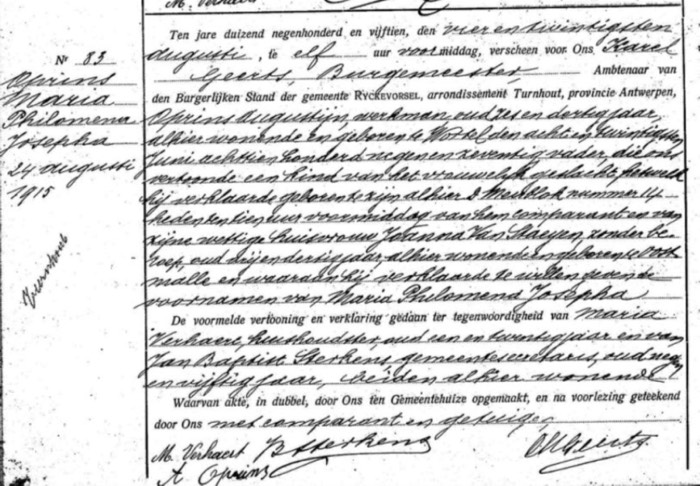 M. Verhaert
Nr 83
Oprins
Maria
Philomena
Josepha
24 augusti
1915
Turnhout
Ten jare duizend negenhonderd en vijftien, den vier en twintigsten
augusti, te elf uur voormiddag, verscheen voor Ons Karel
Geerts, Burgemeester Ambtenaar van
den Burgerlijken Stand der gemeente RYCKEVORSEL, arrondissement Turnhout, provincie Antwerpen,
Oprins Augustijn, werkman, oud zes en dertig jaar,
alhier wonende en geboren te Wortel den acht en twintigsten
Juni achttien honderd negen en zeventig vader, die ons
vertoonde een kind van het vrouwelijk geslacht, hetwelk
hij verklaarde geboren te zijn alhier nummer 14
heden ten tien uur voormiddag van hem comparant en van
zijne wettige huisvrouw Joanna Van Staeyen zonder be-
roep, oud drij en dertig jaar, alhier wonende en geboren te Oost
malle en waaraan hij verklaarde te willen geven de
voornamen van Maria Philomena Josepha
De voormelde vertooning en verklaring gedaan ter tegenwoordigheid van Maria
Verhaert, huishoudster, oud een en twintig jaar en van
Jan Baptist Sterkens, gemeentesecretaris, oud neg-
en vijftig jaar, beiden alhier wonende
Waarvan akte, in dubbel, door Ons ten Gemeentehuize opgemaakt, en na voorlezing geteekend
door Ons met comparant en getuigen
M. Verhaert JB Sterkens KGeerts
A Oprins